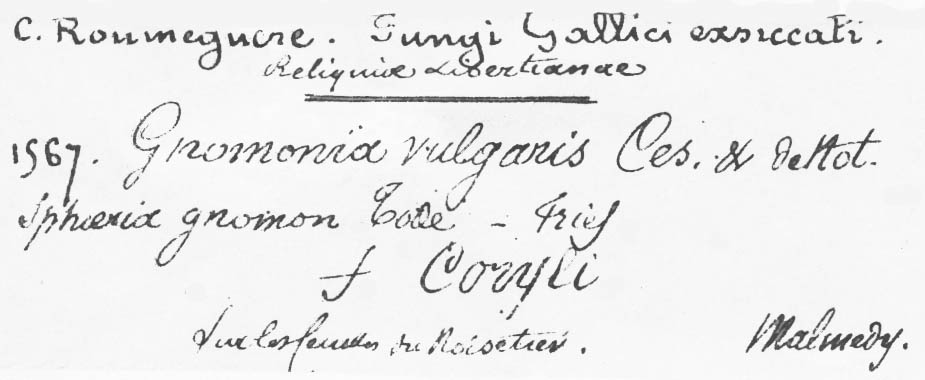 C. Roumeguere. Fungi Gallici exsiccati.
Reliquiæ Libertianae
1567. Gnomonia vulgaris Ces. & deNot.
Sphæria gnomon Tode - Fries
f Coryli
Sur les feuilles du Noisetier. Malmedy.